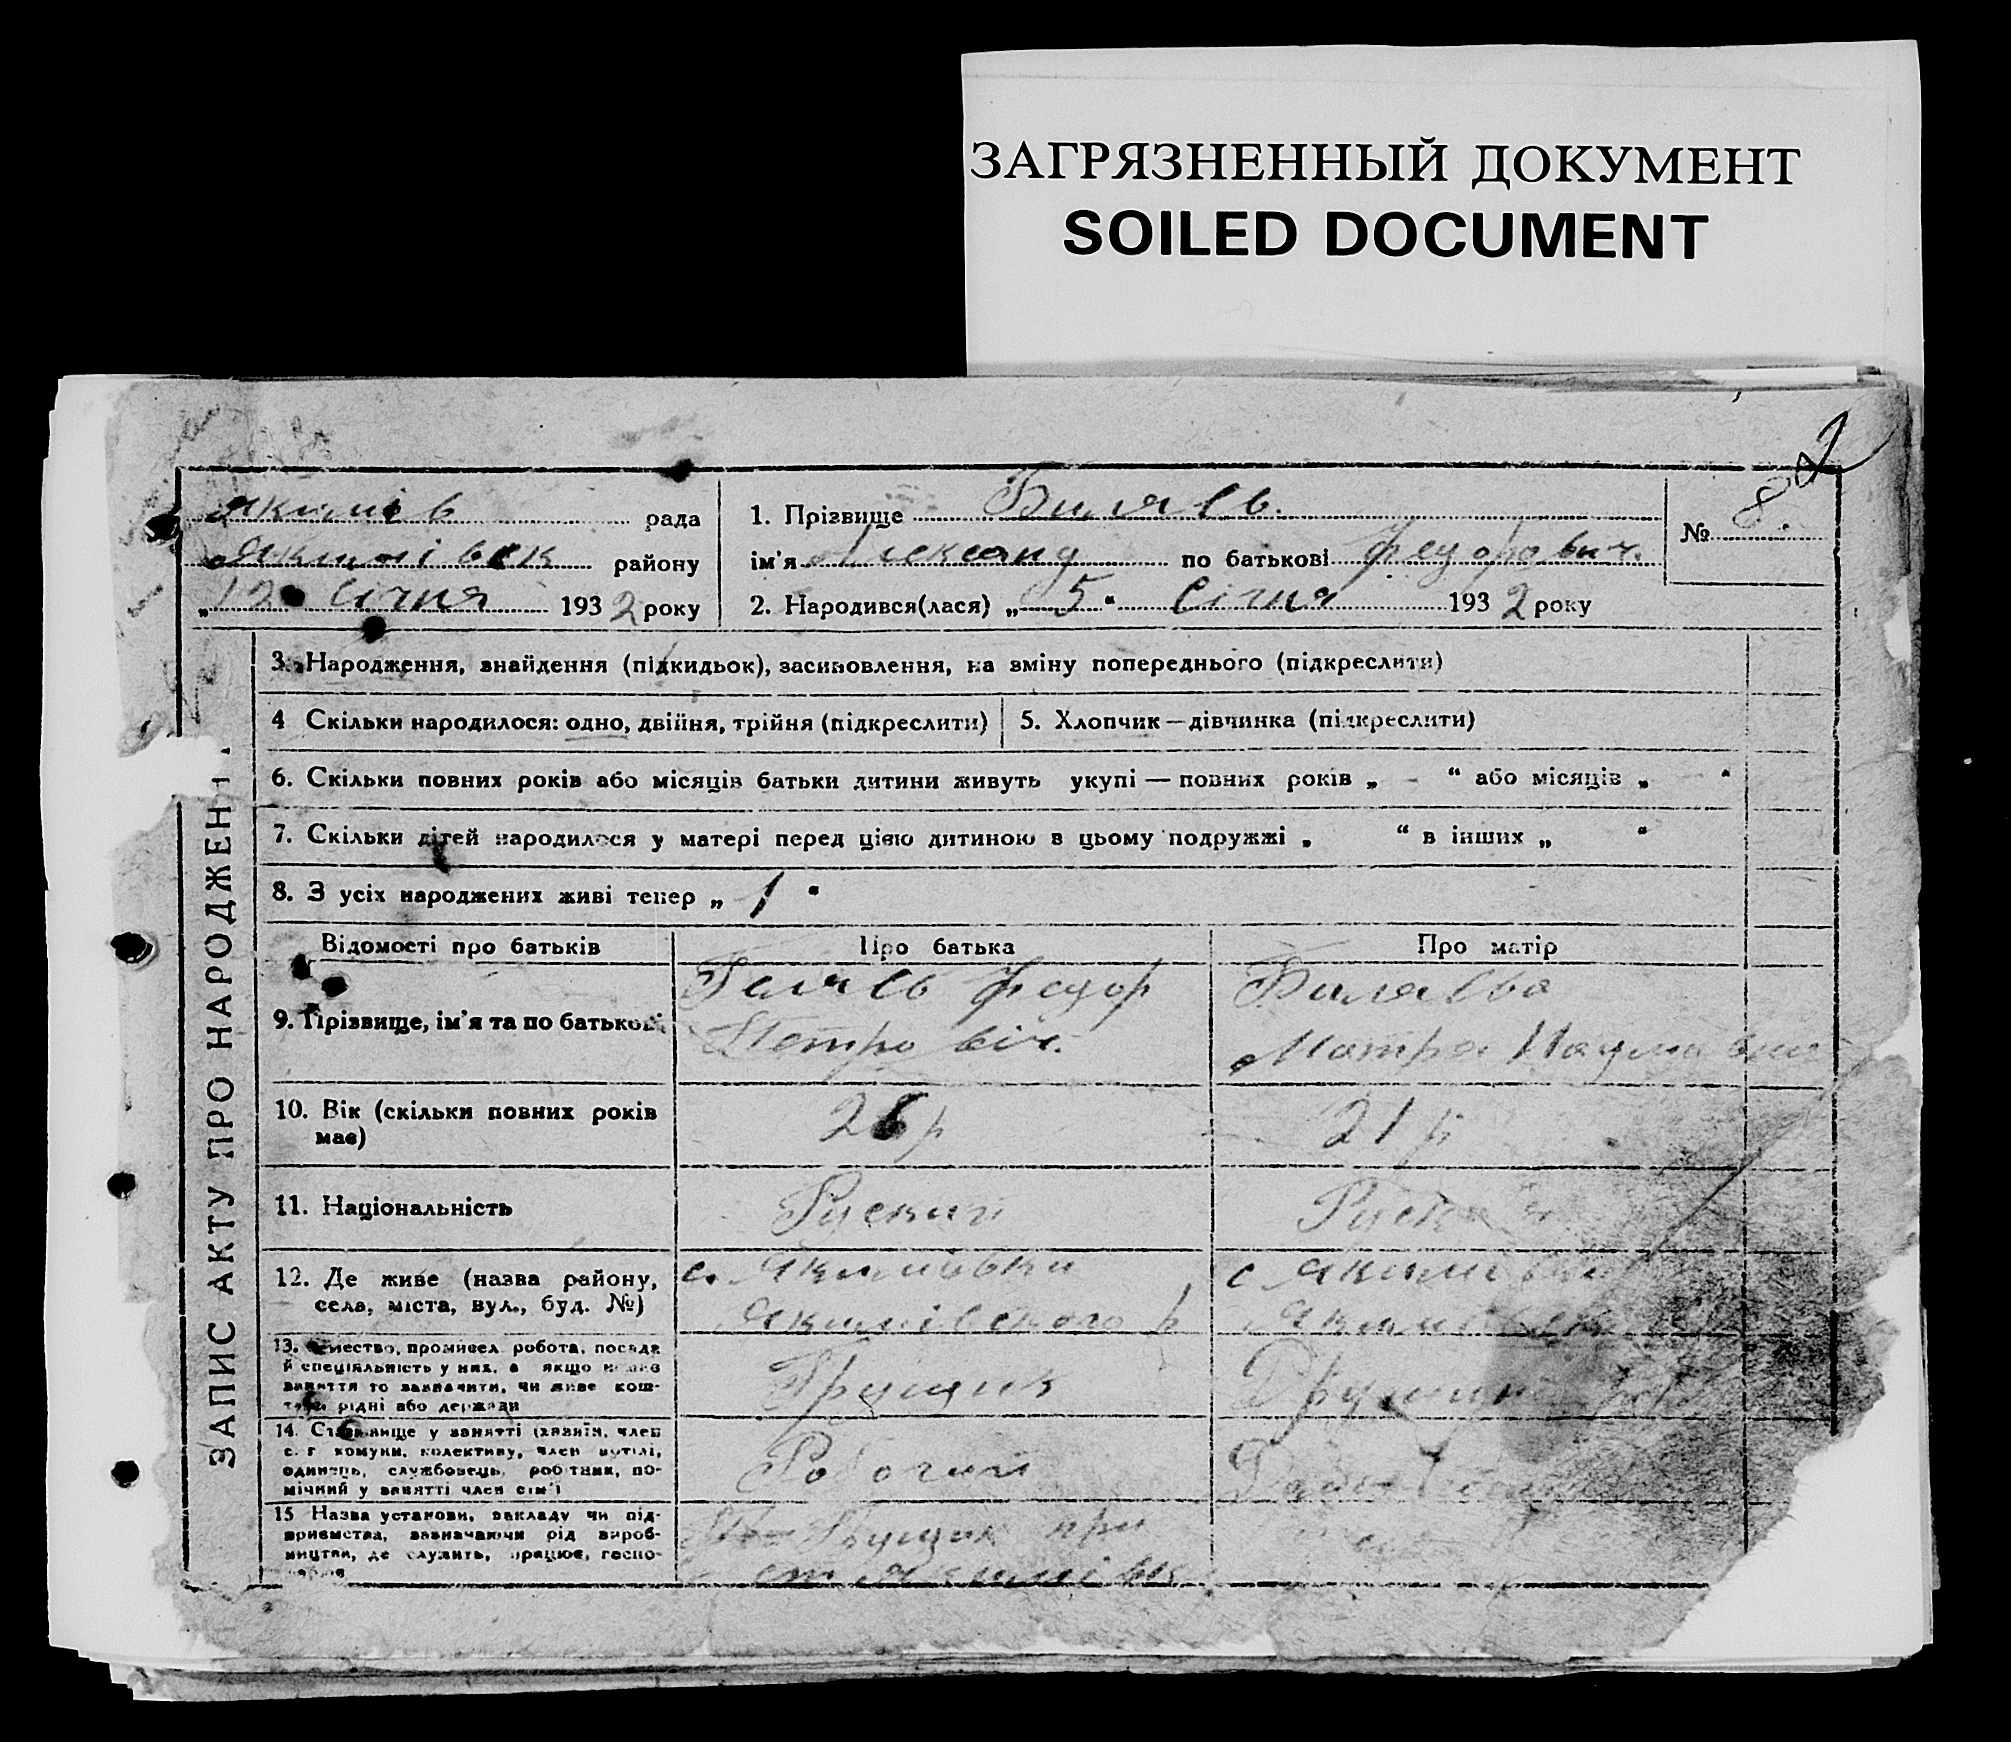 ЗАГРЯЗНЕННЫЙ ДОКУМЕНТ
SOILED DOCUMENT
2
Якимів рада
Якимівськ району
„12 Січня 1932 року
1. Прізвище Биляєв.
ім'я Александ по батькові Федорович.
2. Народився(лася) „5“ Січня 1932 року
№ 8.
ЗАПИС АКТУ ПРО НАРОДЖЕН
3. Народження, знайдення (підкидьок), засиновлення, на зміну попереднього (підкреслити)
4 Скільки народилося: одно, двійня, трійня (підкреслити)
5. Хлопчик — дівчинка (підкреслити)
6. Скільки повних років або місяців батьки дитини живуть укупі — повних років „ - “ або місяців „ “
7. Скільки дітей народилося у матері перед цією дитиною в цьому подружжі „ “ в інших „ “
8. З усіх народжених живі тепер „ 1 “
Відомості про батьків
Про батька
Про матір
9. Прізвище, ім'я та по батькові
Биляєв Федор
Петровіч.
Биляєва
Мотра
10. Вік (скільки повних років
має)
26 р
21 р
11. Національність
Руский
12. Де живе (назва району,
села, міста, вул., буд. №)
с. Якимівки
Якимівского р
с Якимівки
13. робота, посада
й спеціяльність у них, а якщо
заняття то зазначити, чи живе кош-
рідні або держави
Грущик
14. Становище у занятті (хазяїн, член
с. г комуни, колективу, член артілі,
одинець, службовець, робітник, по-
мічний у занятті член сім'ї
Робочий
15 Назва установи, закладу чи під-
приємства, зазначаючи рід вироб-
ництва, де служить, працює, госпо-
при
ст Якимівк